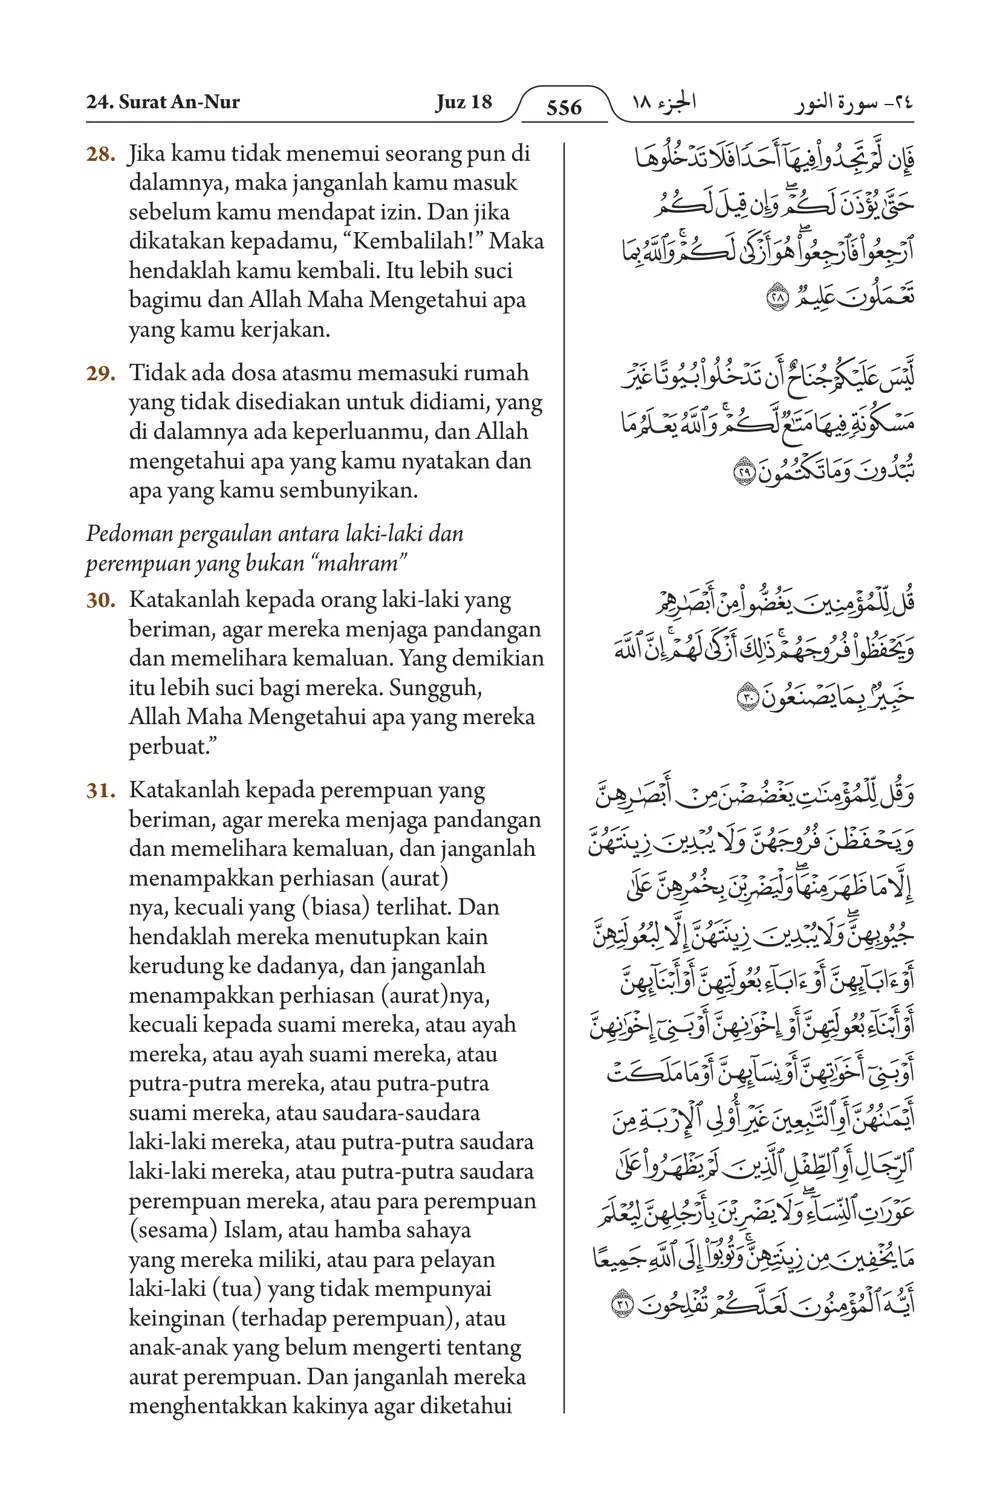 24. Surat An-Nur Juz 18 556 الجزء ١٨ ٢٤- سورة النور
28. Jika kamu tidak menemui seorang pun di
dalamnya, maka janganlah kamu masuk
sebelum kamu mendapat izin. Dan jika
dikatakan kepadamu, “Kembalilah!” Maka
hendaklah kamu kembali. Itu lebih suci
bagimu dan Allah Maha Mengetahui apa
yang kamu kerjakan.
29. Tidak ada dosa atasmu memasuki rumah
yang tidak disediakan untuk didiami, yang
di dalamnya ada keperluanmu, dan Allah
mengetahui apa yang kamu nyatakan dan
apa yang kamu sembunyikan.
Pedoman pergaulan antara laki-laki dan
perempuan yang bukan “mahram”
30. Katakanlah kepada orang laki-laki yang
beriman, agar mereka menjaga pandangan
dan memelihara kemaluan. Yang demikian
itu lebih suci bagi mereka. Sungguh,
Allah Maha Mengetahui apa yang mereka
perbuat.”
31. Katakanlah kepada perempuan yang
beriman, agar mereka menjaga pandangan
dan memelihara kemaluan, dan janganlah
menampakkan perhiasan (aurat)
nya, kecuali yang (biasa) terlihat. Dan
hendaklah mereka menutupkan kain
kerudung ke dadanya, dan janganlah
menampakkan perhiasan (aurat)nya,
kecuali kepada suami mereka, atau ayah
mereka, atau ayah suami mereka, atau
putra-putra mereka, atau putra-putra
suami mereka, atau saudara-saudara
laki-laki mereka, atau putra-putra saudara
laki-laki mereka, atau putra-putra saudara
perempuan mereka, atau para perempuan
(sesama) Islam, atau hamba sahaya
yang mereka miliki, atau para pelayan
laki-laki (tua) yang tidak mempunyai
keinginan (terhadap perempuan), atau
anak-anak yang belum mengerti tentang
aurat perempuan. Dan janganlah mereka
menghentakkan kakinya agar diketahui
فَإِن لَّمْ تَجِدُوا۟ فِيهَآ أَحَدًا فَلَا تَدْخُلُوهَا
حَتَّىٰ يُؤْذَنَ لَكُمْ ۖ وَإِن قِيلَ لَكُمُ
ٱرْجِعُوا۟ فَٱرْجِعُوا۟ ۖ هُوَ أَزْكَىٰ لَكُمْ ۚ وَٱللَّهُ بِمَا
تَعْمَلُونَ عَلِيمٌ ٢٨
لَّيْسَ عَلَيْكُمْ جُنَاحٌ أَن تَدْخُلُوا۟ بُيُوتًا غَيْرَ
مَسْكُونَةٍ فِيهَا مَتَـٰعٌ لَّكُمْ ۚ وَٱللَّهُ يَعْلَمُ مَا
تُبْدُونَ وَمَا تَكْتُمُونَ ٢٩
قُل لِّلْمُؤْمِنِينَ يَغُضُّوا۟ مِنْ أَبْصَـٰرِهِمْ
وَيَحْفَظُوا۟ فُرُوجَهُمْ ۚ ذَٰلِكَ أَزْكَىٰ لَهُمْ ۚ إِنَّ ٱللَّهَ
خَبِيرٌۢ بِمَا يَصْنَعُونَ ٣٠
وَقُل لِّلْمُؤْمِنَـٰتِ يَغْضُضْنَ مِنْ أَبْصَـٰرِهِنَّ
وَيَحْفَظْنَ فُرُوجَهُنَّ وَلَا يُبْدِينَ زِينَتَهُنَّ
إِلَّا مَا ظَهَرَ مِنْهَا ۖ وَلْيَضْرِبْنَ بِخُمُرِهِنَّ عَلَىٰ
جُيُوبِهِنَّ ۖ وَلَا يُبْدِينَ زِينَتَهُنَّ إِلَّا لِبُعُولَتِهِنَّ
أَوْ ءَابَآئِهِنَّ أَوْ ءَابَآءِ بُعُولَتِهِنَّ أَوْ أَبْنَآئِهِنَّ
أَوْ أَبْنَآءِ بُعُولَتِهِنَّ أَوْ إِخْوَٰنِهِنَّ أَوْ بَنِىٓ إِخْوَٰنِهِنَّ
أَوْ بَنِىٓ أَخَوَٰتِهِنَّ أَوْ نِسَآئِهِنَّ أَوْ مَا مَلَكَتْ
أَيْمَـٰنُهُنَّ أَوِ ٱلتَّـٰبِعِينَ غَيْرِ أُو۟لِى ٱلْإِرْبَةِ مِنَ
ٱلرِّجَالِ أَوِ ٱلطِّفْلِ ٱلَّذِينَ لَمْ يَظْهَرُوا۟ عَلَىٰ
عَوْرَٰتِ ٱلنِّسَآءِ ۖ وَلَا يَضْرِبْنَ بِأَرْجُلِهِنَّ لِيُعْلَمَ
مَا يُخْفِينَ مِن زِينَتِهِنَّ ۚ وَتُوبُوٓا۟ إِلَى ٱللَّهِ جَمِيعًا
أَيُّهَ ٱلْمُؤْمِنُونَ لَعَلَّكُمْ تُفْلِحُونَ ٣١